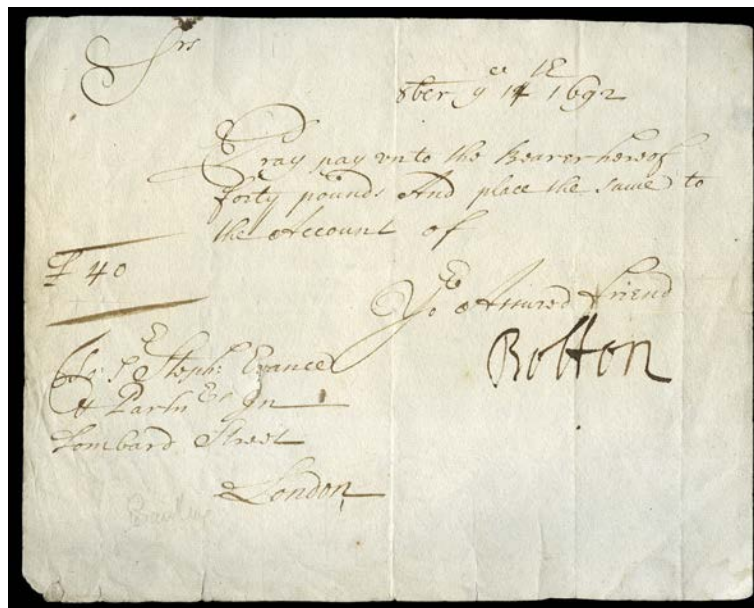 Srs
8ber ye 14 1692
Pray pay vnto the Bearer hereof
forty pounds And place the same to
the Account of
£ 40
Yor Assured Friend
Bolton
To Sr Steph: Evance
& Partnrs In
Lombard Street
London